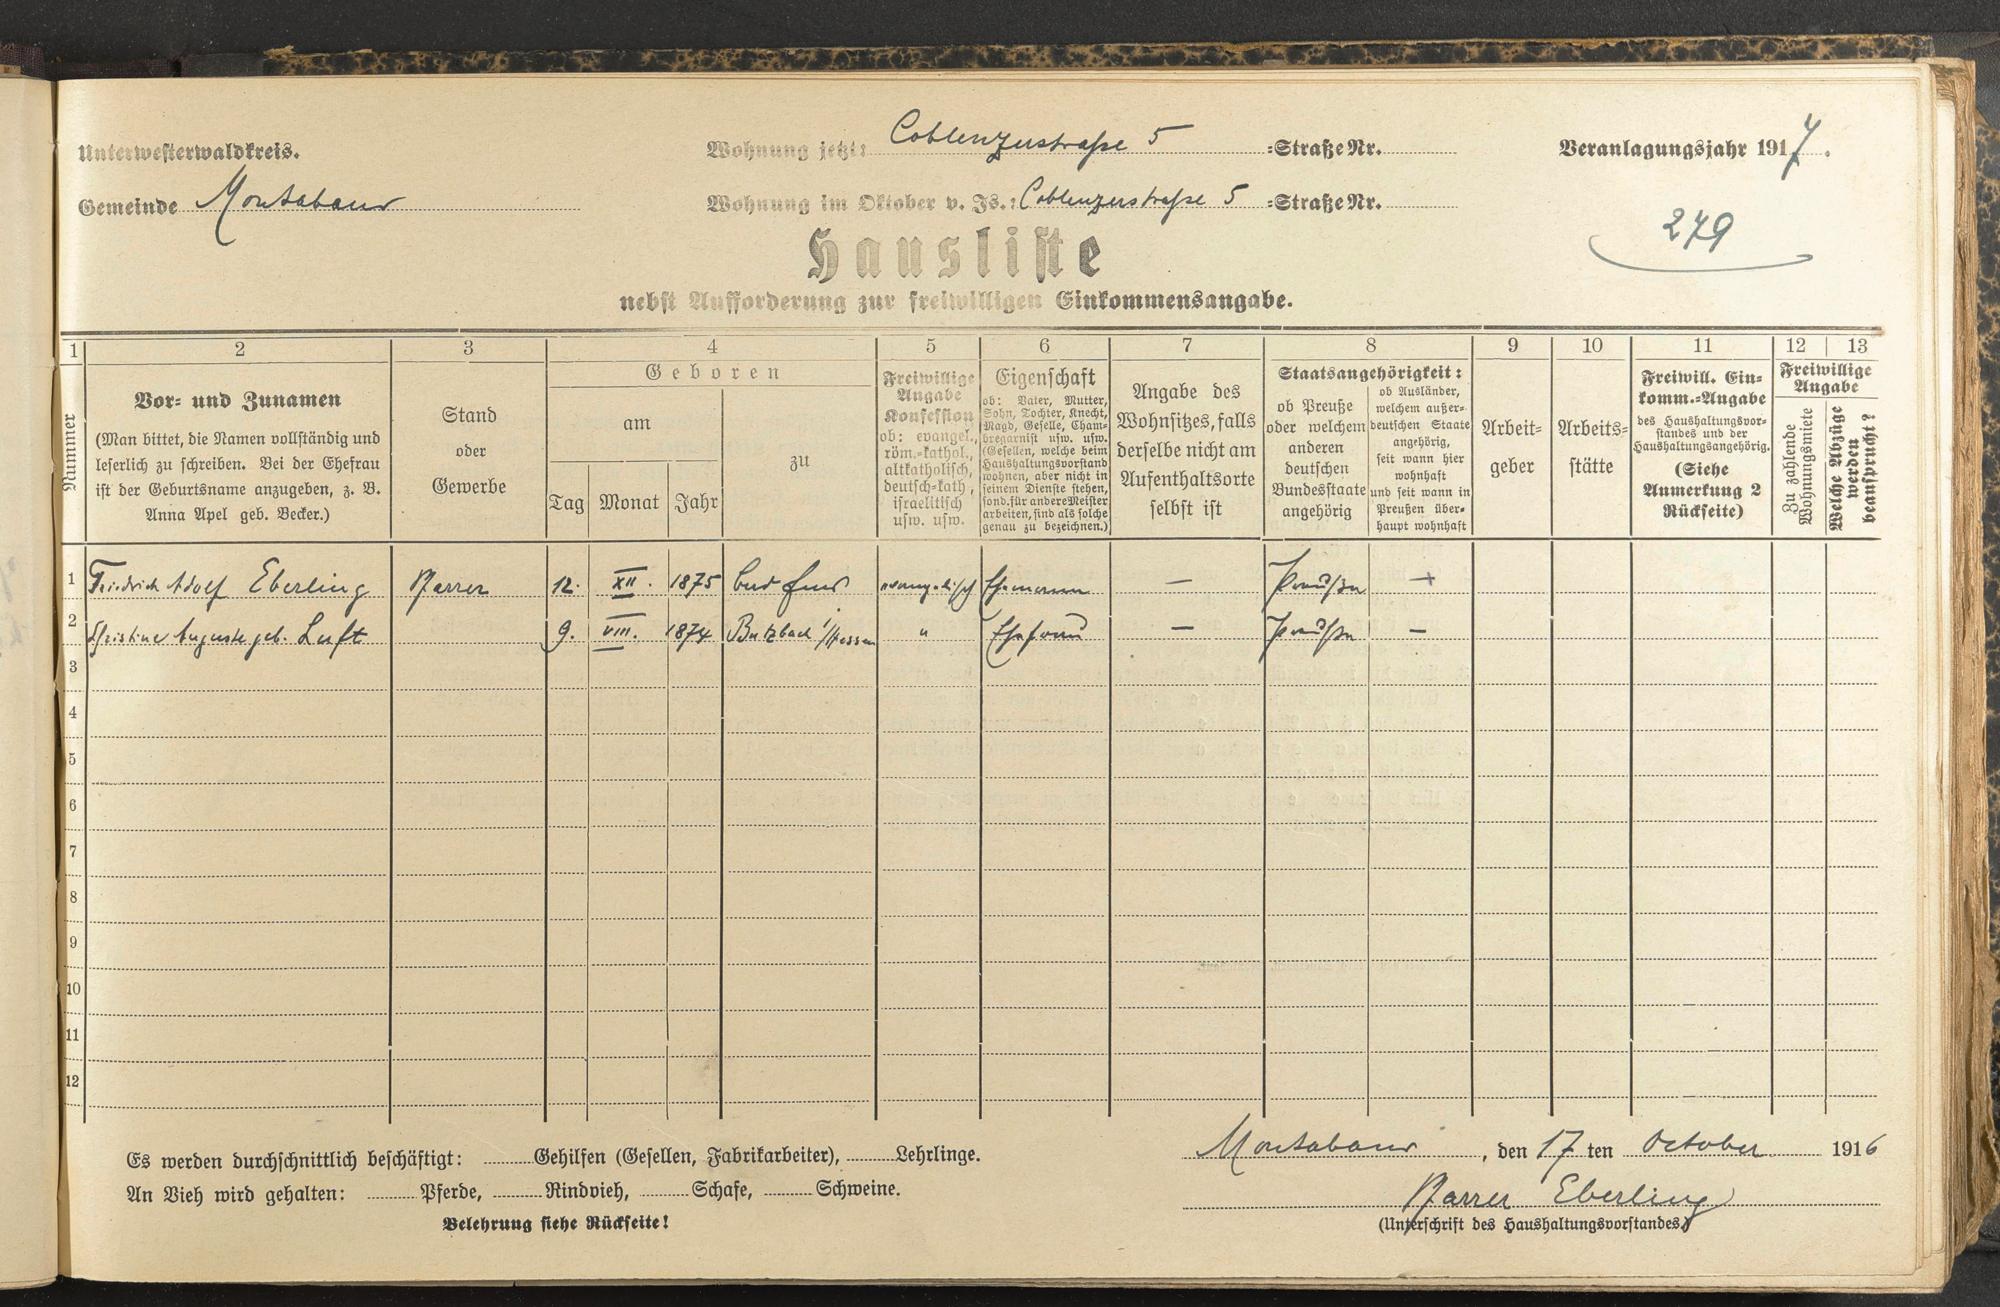 Unterwesterwaldkreis.
Wohnung jetzt: Coblenzerstraße 5 =Straße Nr.
Veranlagungsjahr 1917.
Gemeinde Montabaur
Wohnung im Oktober v. Js.: Coblenzerstraße 5 =Straße Nr.
279
Hausliste
nebst Aufforderung zur freiwilligen Einkommensangabe.
1 2 3 4 5 6 7 8 9 10 11 12 13
Nummer
Vor- und Zunamen
(Man bittet, die Namen vollständig und
leserlich zu schreiben. Bei der Ehefrau
ist der Geburtsname anzugeben, z. B.
Anna Apel geb. Becker.)
Stand
oder
Gewerbe
Geboren
am
Tag Monat Jahr
zu
Freiwillige
Angabe
Konfession
ob: evangel.,
röm.-kathol.,
altkatholisch,
deutsch-kath,
israelitisch
usw. usw.
Eigenschaft
ob: Vater, Mutter,
Sohn, Tochter, Knecht,
Magd, Geselle, Cham-
bregarnist usw. usw.
(Gesellen, welche beim
Haushaltungsvorstand
wohnen, aber nicht in
seinem Dienste stehen,
sond. für andere Meister
arbeiten, sind als solche
genau zu bezeichnen.)
Angabe des
Wohnsitzes, falls
derselbe nicht am
Aufenthaltsorte
selbst ist
Staatsangehörigkeit:
ob Preuße
oder welchem
anderen
deutschen
Bundesstaate
angehörig
ob Ausländer,
welchem außer-
deutschen Staate
angehörig,
seit wann hier
wohnhaft
und seit wann in
Preußen über-
haupt wohnhaft
Arbeit-
geber
Arbeits-
stätte
Freiwill. Ein-
komm.-Angabe
des Haushaltungsvor-
standes und der
Haushaltungsangehörig.
(Siehe
Anmerkung 2
Rückseite)
Freiwillige
Angabe
Zu zahlende
Wohnungsmiete
Welche Abzüge
werden
beansprucht?
1 Friedrich Adolf Eberling Pfarrer 12. XII. 1875 Bad Ems evangelisch Ehemann — Preußen —
2 Christine Auguste geb. Luft 9. VIII. 1874 Butzbach i/Hessen " Ehefrau — Preußen —
3
4
5
6
7
8
9
10
11
12
Es werden durchschnittlich beschäftigt: Gehilfen (Gesellen, Fabrikarbeiter), Lehrlinge.
An Vieh wird gehalten: Pferde, Rindvieh, Schafe, Schweine.
Belehrung siehe Rückseite!
Montabaur, den 17 ten October 1916
Pfarrer Eberling
(Unterschrift des Haushaltungsvorstandes)